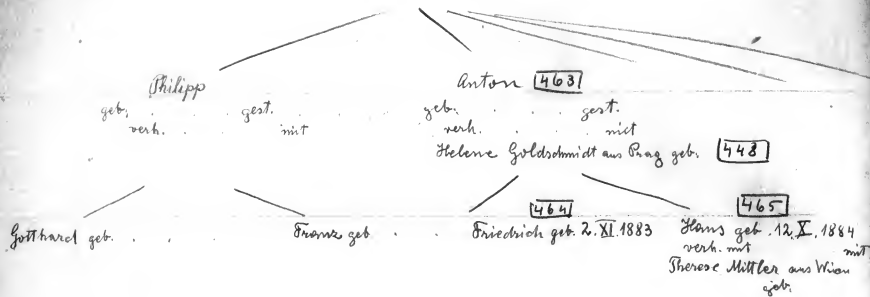 Philipp
geb. . . . gest.
verh. . . mit
Anton 463
geb. . . . gest.
verh. . . mit
Helene Goldschmidt aus Prag geb. 448
Gotthard geb. . . .
Franz geb . .
464
Friedrich geb. 2. XI. 1883
465
Hans geb. 12. X. 1884
verh. mit mit
Therese Mittler aus Wien
geb.